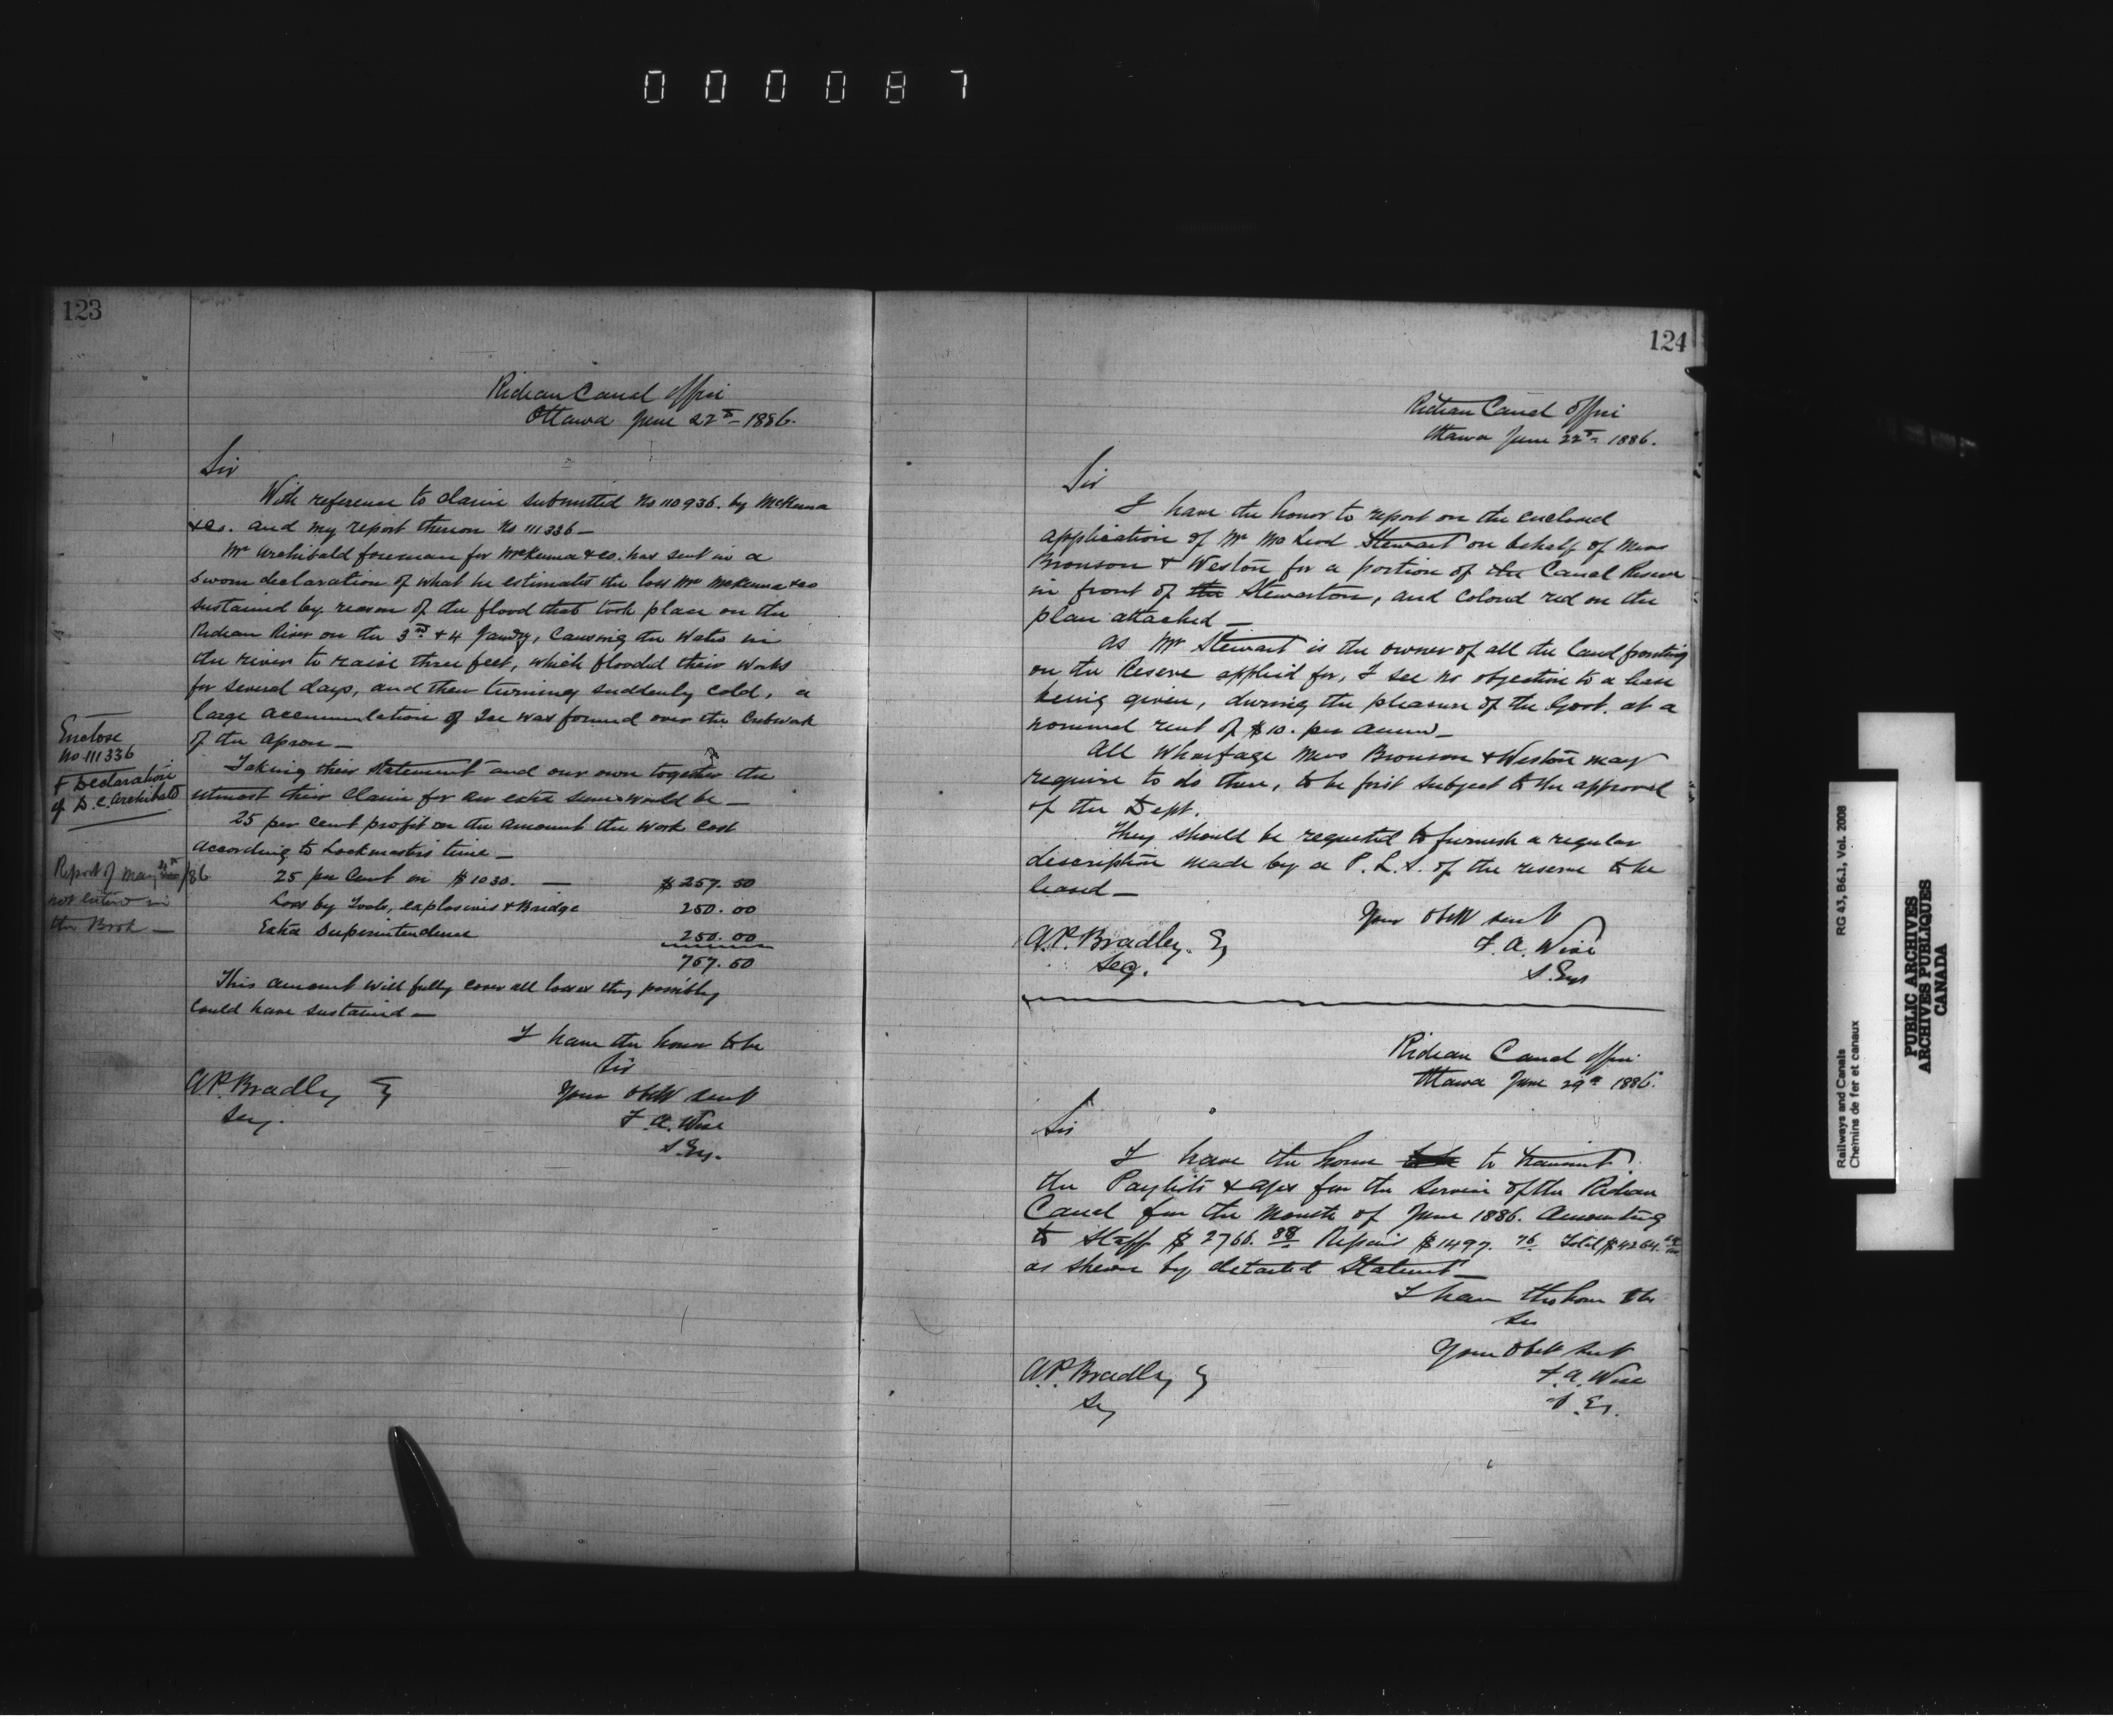 000087
123
Rideau Canal Office
Ottawa June 22nd 1886.
Sir
With reference to claim submitted No 110936. by McKenna
& Co. and my report thereon No 111336 —
Mr Archibald foreman for McKenna & Co. has sent in a
sworn declaration of what he estimates the loss Mr McKenna & Co
sustained by reason of the flood that took place on the
Rideau River on the 3rd & 4 Jany, causing the water in
the river to raise three feet, which flooded their works
for several days, and then turning suddenly cold, a
large accumulation of Ice was formed over the Cribwork
of the Apron —
Taking their statement and our own together the
utmost their claim for an extra sum would be —
25 per cent profit on the amount the work cost
according to Lockmasters time —
25 per cent on $1030. — $257.50
Loss by Tools, explosives & Bridge 250.00
Extra Superintendence 250.00
757.50
This amount will fully cover all losses they possibly
could have sustained —
I have the honor to be
Sir
Your Obdt Servt
F. A. Wise
S. Eng.
A. P. Bradley Esq
Secy.
Enclose
No 111336
& Declaration
of D. C. Archibald
Report of May /86
not entered in
the Book —
124
Rideau Canal Office
Ottawa June 22nd 1886.
Sir
I have the honor to report on the enclosed
application of Mr McLeod Stewart on behalf of Mess
Bronson & Weston for a portion of the Canal Reserve
in front of the Stewarton, and colored red on the
plan attached —
As Mr Stewart is the owner of all the land fronting
on the Reserve applied for, I see no objection to a lease
being given, during the pleasure of the Govt. at a
nominal rent of $10. per annum —
All Wharfage Mess Bronson & Weston may
require to do there, to be first subject to the approval
of the Dept.
They should be requested to furnish a regular
description made by a P. L. S. of the reserve to be
leased —
Your Obdt Servt
F. A. Wise
S. Eng
A. P. Bradley. Esq
Secy.
Rideau Canal Office
Ottawa June 29th 1886.
Sir
I have the honor to transmit
the Paylists & a/cs for the Service of the Rideau
Canal for the Month of June 1886. Amounting
to Staff $2766.88 Repairs $1497.76 Total $4264.64
as shewn by detailed Statement —
I have the honor to be
Sir
Your Obdt Servt
F. A. Wise
S. Eg.
A. P. Bradley Esq
Secy
RG 43, B6.1, Vol. 2008
Railways and Canals
Chemins de fer et canaux
PUBLIC ARCHIVES
ARCHIVES PUBLIQUES
CANADA